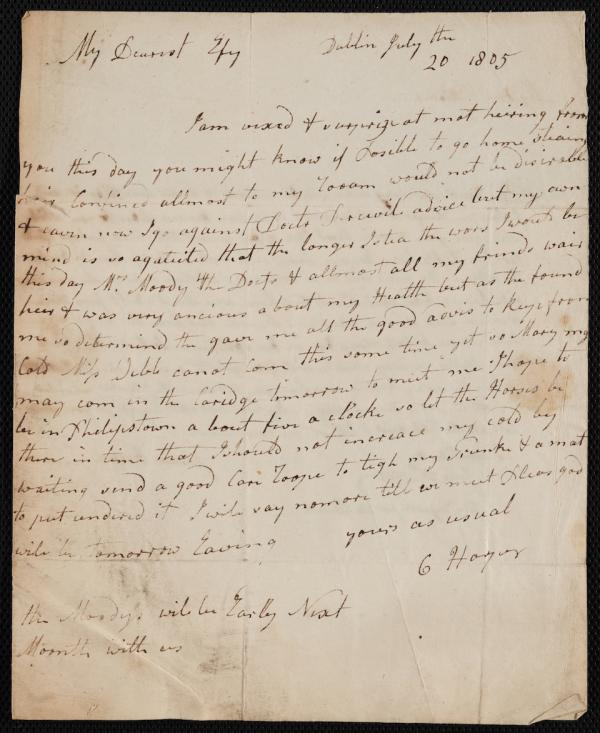 My Dearest Efy Dublin July the
20 1805
I am vixed & surprize at not heiring from
you this day you might know if Posible to go home staing
heir Confined allmost to my Rooam would not be disirable
& eavin now I go against Docts advice but my own
mind is so agateited that the longer I stea the wors I wout be
this day Mrs Moody the Docts & allmost all my frinds wair
heir & was very ancious about my Health but as the found
me so determind the gave me all the good advis to keep from
Cold Miss canot com this some time yet so Mary my
may com in the Caridge tomorrow to meet me I hope to
be in Philipstown a bout five a clocke so let the Horses be
there in time that I should not increace my cold by
waiting send a good Care Roope to tigh my Trunke & a mat
to put undered it I wile say nomore tell we meet Pleas god
wile be tomorrow Eaving
yours as usual
C
the Moodys wile be Earlly Next
Moonth with us